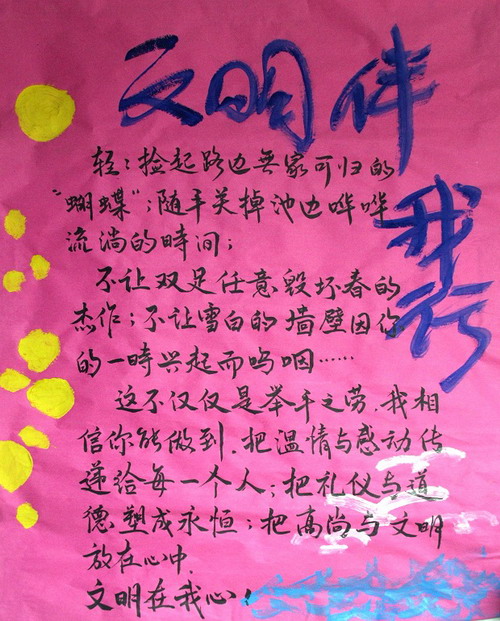 文明伴
我行
轻轻捡起路边无家可归的
“蝴蝶”；随手关掉池边哗哗
流淌的時间；
不让双足任意毁坏春的
杰作；不让雪白的墙壁因你
的一時兴起而呜咽……
这不仅仅是举手之劳，我相
信你能做到，把温情与感动传
递给每一个人；把礼仪与道
德塑成永恒；把高尚与文明
放在心中，
文明在我心！